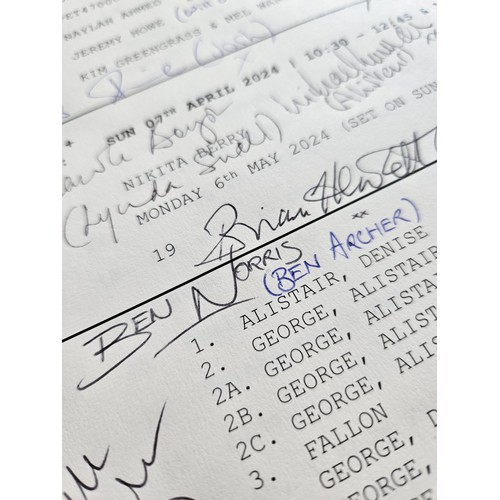 NAYLAH AHMED
JEREMY HOWE
KIM GREENGRASS & MEL WAR
SUN 07TH APRIL 2024 | 10:30 - 12:45 &
NIKITA BERRY
(Lynda Snell)
(Alistair)
MONDAY 6th MAY 2024 (SET ON SUN
19
Brian Hewlett
BEN NORRIS
(BEN ARCHER)
1. ALISTAIR, DENISE
2. GEORGE, ALISTAIR
2A. GEORGE, ALISTA
2B. GEORGE, ALIST
2C. GEORGE, ALIS
3. FALLON
GEORGE, D
GEORGE,